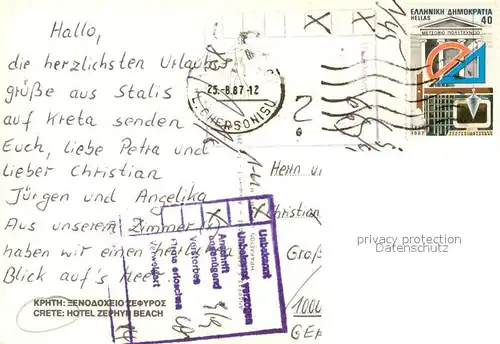 Hallo,
die herzlichsten Urlaubs
grüße aus Stalis
auf Kreta senden
Euch, liebe Petra und
lieber Christian
Jürgen und Angelika
Aus unserem Zimmer
haben wir einen
Blick auf's Meer
ΚΡΗΤΗ: ΞΕΝΟΔΟΧΕΙΟ ΖΕΦΥΡΟΣ
CRETE: HOTEL ZEPHYR BEACH
ΕΛΛΗΝΙΚΗ ΔΗΜΟΚΡΑΤΙΑ
HELLAS 40
ΜΕΤΣΟΒΙΟ ΠΟΛΥΤΕΧΝΕΙΟ
25.-8.87-12
L. CHERSONISOU
2
Herrn
Christian
privacy protection
Groß
1000
Unbekannt
Unbekannt verzogen
Anschrift
ungenügend
Verstorben
Firma erloschen
Verweigert